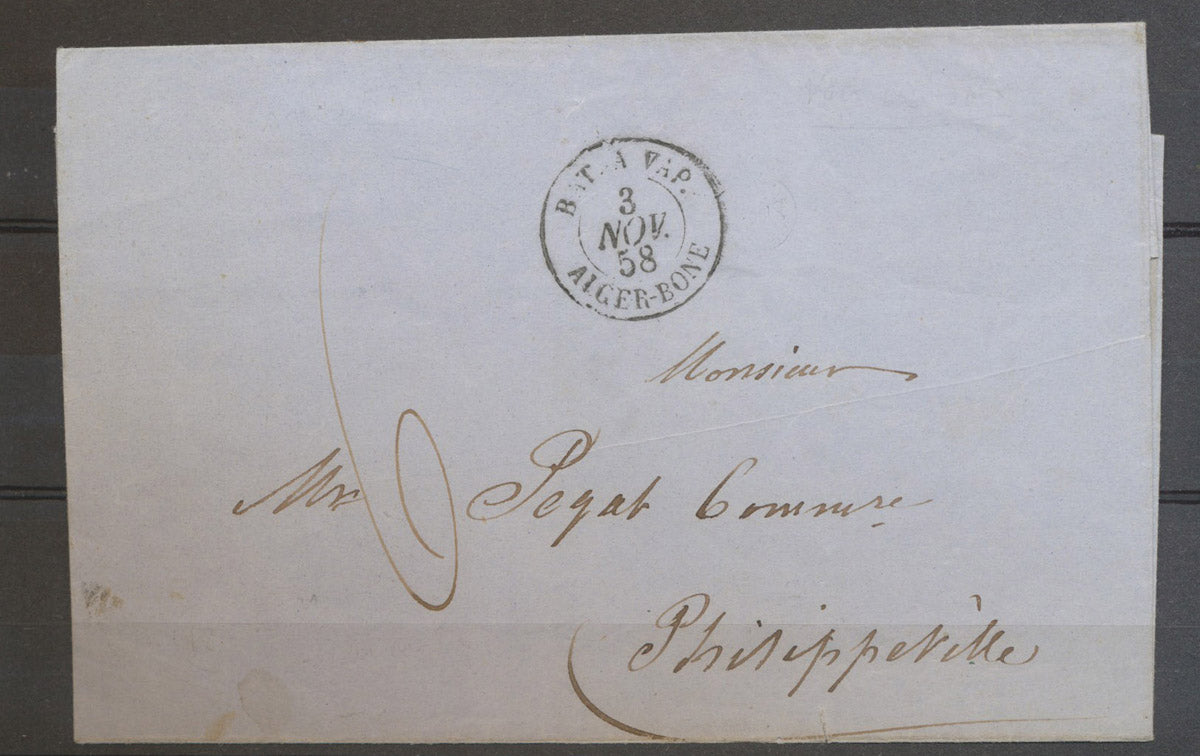 BAT. A VAP.
3
NOV.
58
ALGER-BONE
Monsieur
Mr Pegat Commre
Philippeville
6